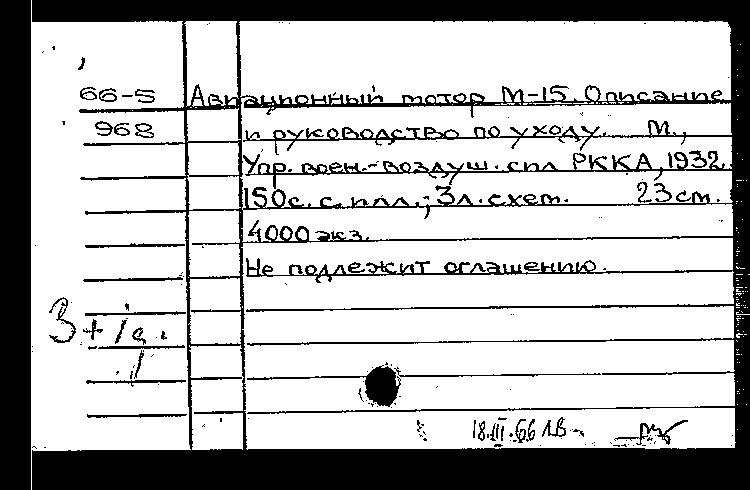 66-5 Авиационный мотор М-15. Описание
968 и руководство по уходу. М.,
Упр. воен.-воздуш. сил РККА, 1932.
150с. с илл.; 3л. схем. 23 см.
4000 экз.
Не подлежит оглашению.
3+1д.
18.III.66